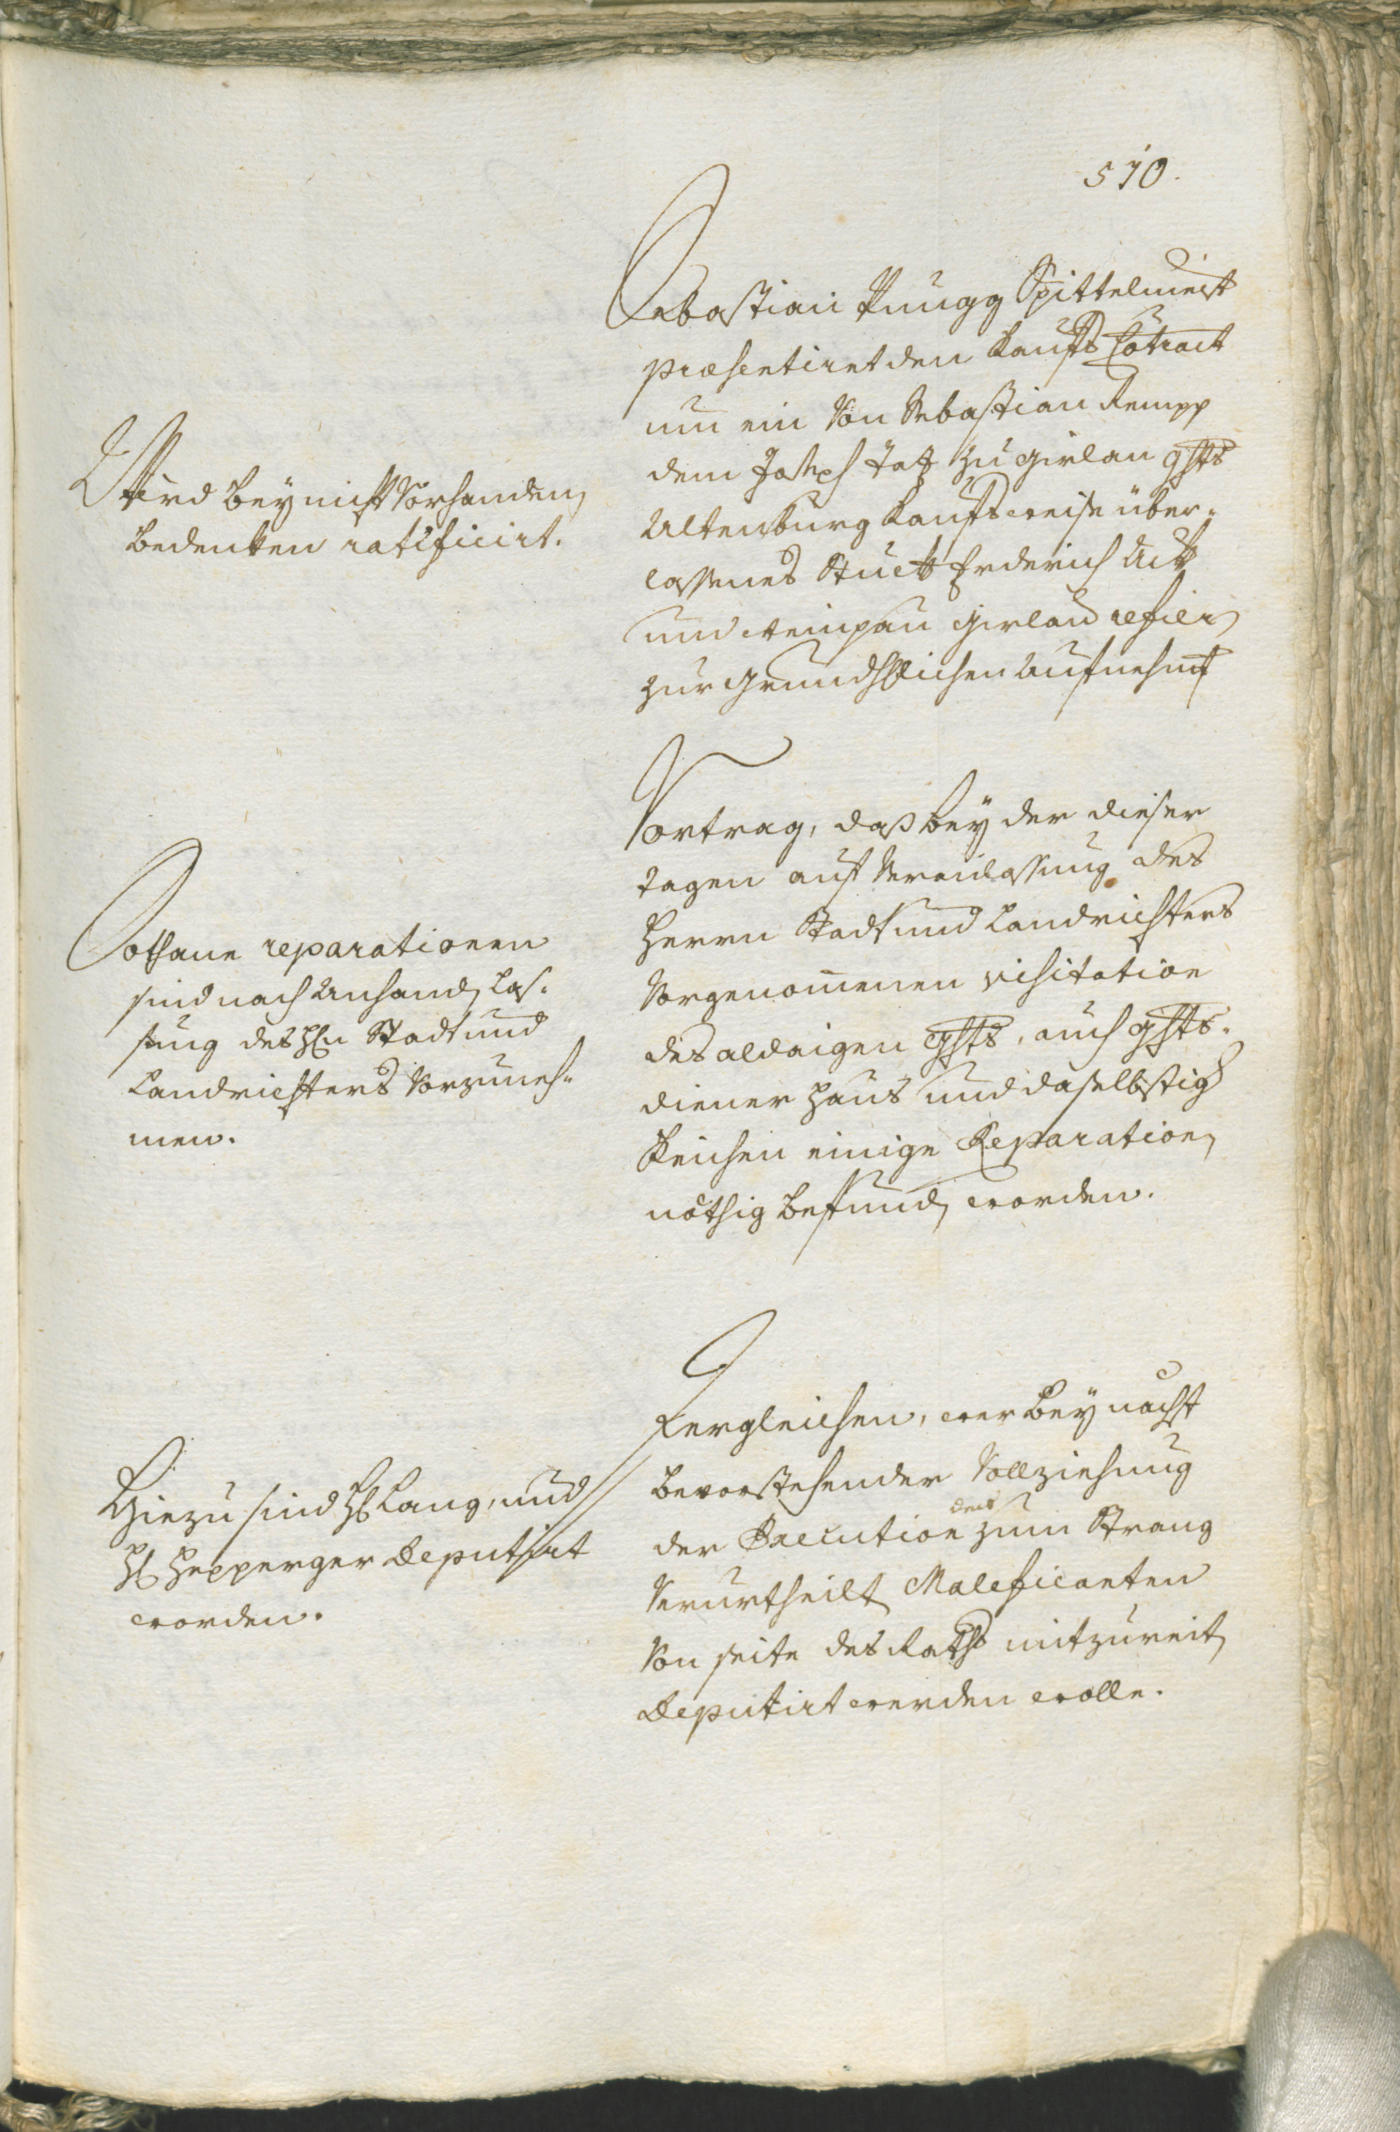 510.
Sebastian Pungg Spittelmeist
præsentiret den Kaufs Cōtract
um ein von Sebastian Kempp
dem Joseph Tatz zu Girlan ghts
Altenburg kaufsweise über-
lassenes Stuck Erderich Ack
und Weinpau Girlan refier
zur Grundhlichen Aufnehm
Wird bey nicht vorhanden
bedenken ratificirt.
Vortrag, daß bey der dieser
tagen auf Veranlassung des
Herrn Stadt und Landrichters
vorgenom̄enen visitation
des aldaigen Ghts, auch ghts-
diener Haus und daselbstig
Keichen einige Reparation
nöthig befund worden.
Sothane reparationen
sind nach Anhand Las-
sung des H Stadt und
Landrichters vorzuneh-
men.
Vergleichen, wer bey nächst
bevorstehender Vollziehung
der Execution der zum Strang
verurtheilt Maleficanten
von seite des Raths mitzureit
deputirt werden wolle.
Hiezu sind H Lang, und
H Hepperger deputirt
worden.